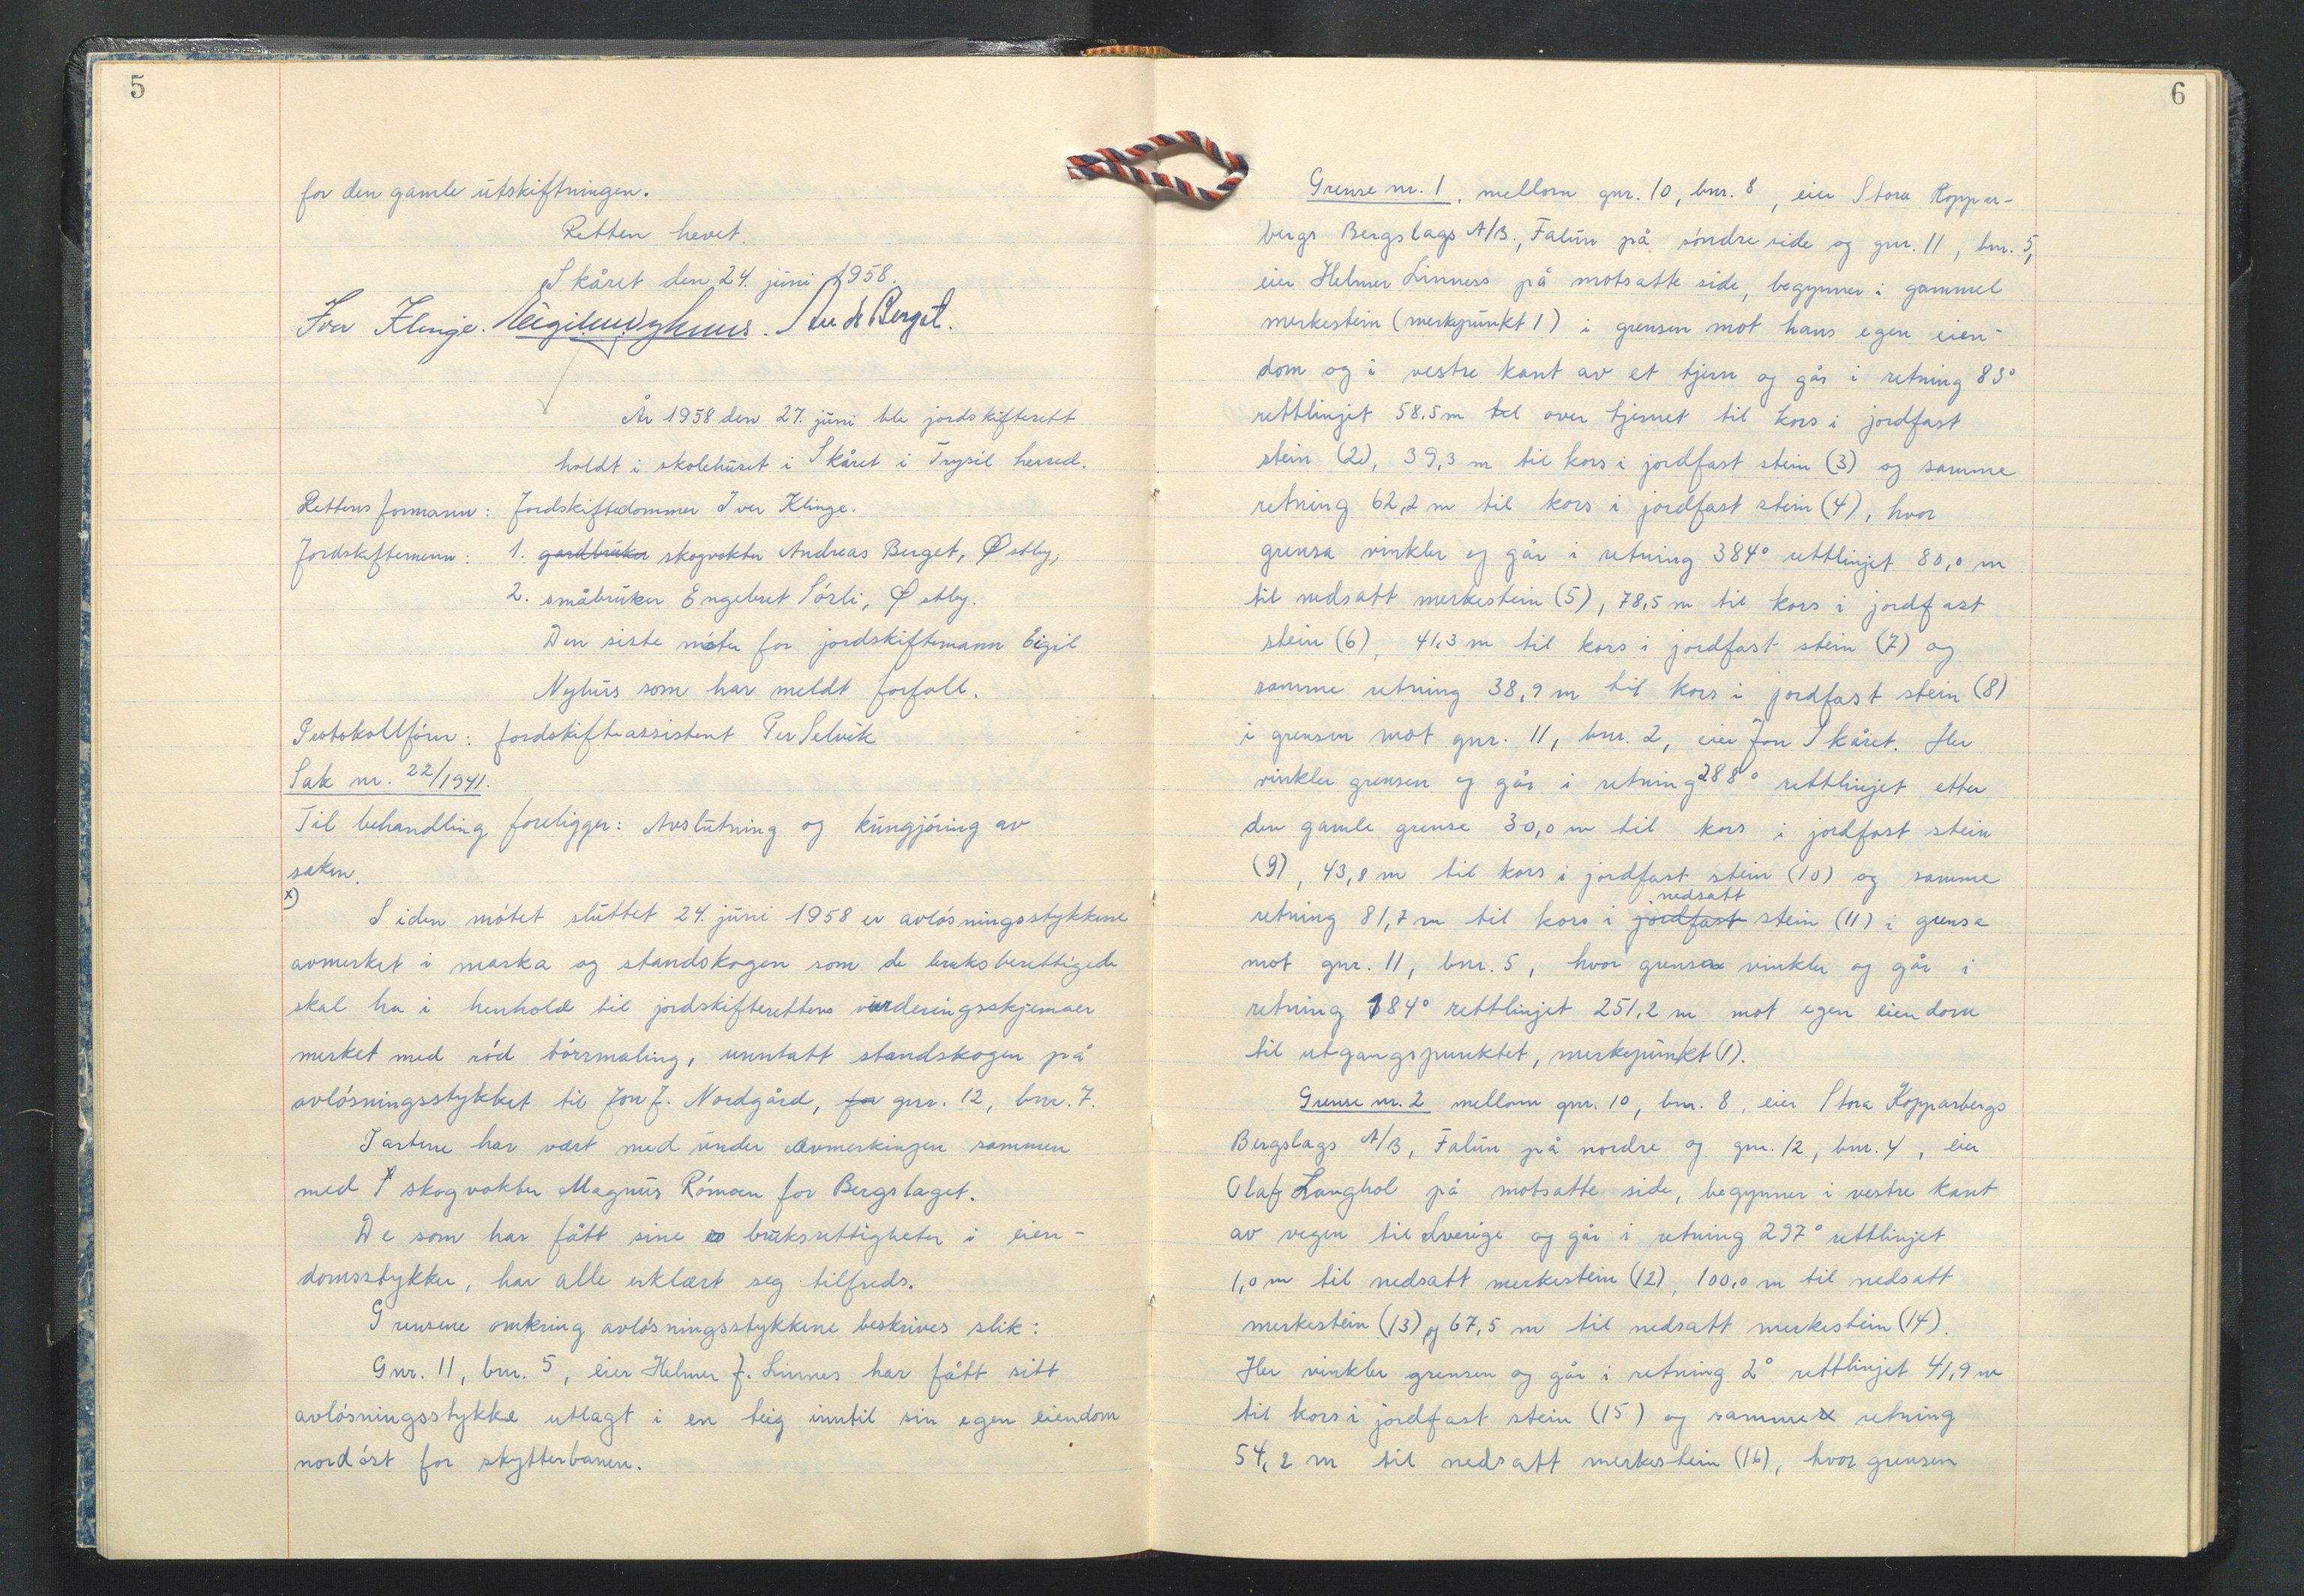 5
for den gamle utskiftningen.
Retten hevet.
Skåret den 24. juni 1958.
Iver Klinge. Eigil Nyhuus. And. Berget.
År 1958 den 27. juni ble jordskifterett
holdt i skolehuset i Skåret i Trysil herred.
Rettens formann: Jordskiftedommer Iver Klinge.
Jordskiftemenn: 1. gardbruker skogvokter Andreas Berget, Østby,
2. småbruker Engebret Sørli, Østby.
Den siste møter for jordskiftemann Eigil
Nyhus som har meldt forfall.
Protokollfører: Jordskifteassistent Per Selvik
Sak nr. 22/1941.
Til behandling foreligger: Avslutning og kungjøring av
saken.
x)
Siden møtet sluttet 24. juni 1958 er avløsningsstykkene
avmerket i marka og standskogen som de bruksberettigede
skal ha i henhold til jordskifterettens vurderingsskjemaer
merket med rød tørrmaling, unntatt standskogen på
avløsningsstykket til Jon J. Nordgård, for gnr. 12, bnr. 7.
Partene har vært med under avmerkingen sammen
med skogvokter Magnus Rømoen for Bergslaget.
De som har fått sine bruksrettigheter i eien-
domsstykker, har alle erklært seg tilfreds.
Grensene omkring avløsningsstykkene beskrives slik:
Gnr. 11, bnr. 5, eier Helmer J. Linnes har fått sitt
avløsningsstykke utlagt i en teig inntil sin egen eiendom
nordøst for skytterbanen.
6
Grense nr. 1, mellom gnr. 10, bnr. 8, eier Stora Koppar-
bergs Bergslags A/B., Falun på søndre side og gnr. 11, bnr. 5,
eier Helmer Linnes på motsatte side, begynner i gammel
merkestein (merkepunkt 1) i grensen mot hans egen eien-
dom og i vestre kant av et tjern og går i retning 83°
rettlinjet 58,5 m tel over tjernet til kors i jordfast
stein (2), 39,3 m til kors i jordfast stein (3) og samme
retning 62,2 m til kors i jordfast stein (4), hvor
grensa vinkler og går i retning 384° rettlinjet 80,0 m
til nedsatt merkestein (5), 78,5 m til kors i jordfast
stein (6), 41,3 m til kors i jordfast stein (7) og
samme retning 38,9 m til kors i jordfast stein (8)
i grensen mot gnr. 11, bnr. 2, eier Jon Skåret. Her
vinkler grensen og går i retning 288° rettlinjet etter
den gamle grense 30,0 m til kors i jordfast stein
(9), 43,8 m til kors i jordfast stein (10) og samme
nedsatt
retning 81,7 m til kors i jordfast stein (11) i grensa
mot gnr. 11, bnr. 5, hvor grensa vinkler og går i
retning 184° rettlinjet 251,2 m mot egen eiendom
til utgangspunktet, merkepunkt (1).
Grense nr. 2 mellom gnr. 10, bnr. 8, eier Stora Kopparbergs
Bergslags A/B, Falun på nordre og gnr. 12, bnr. 4, eier
Olaf Langhol på motsatte side, begynner i vestre kant
av vegen til Sverige og går i retning 297° rettlinjet
1,0 m til nedsatt merkestein (12), 100,0 m til nedsatt
merkestein (13) og 67,5 m til nedsatt merkestein (14).
Her vinkler grensen og går i retning 2° rettlinjet 41,9 m
til kors i jordfast stein (15) og samme retning
54,2 m til nedsatt merkestein (16), hvor grensen